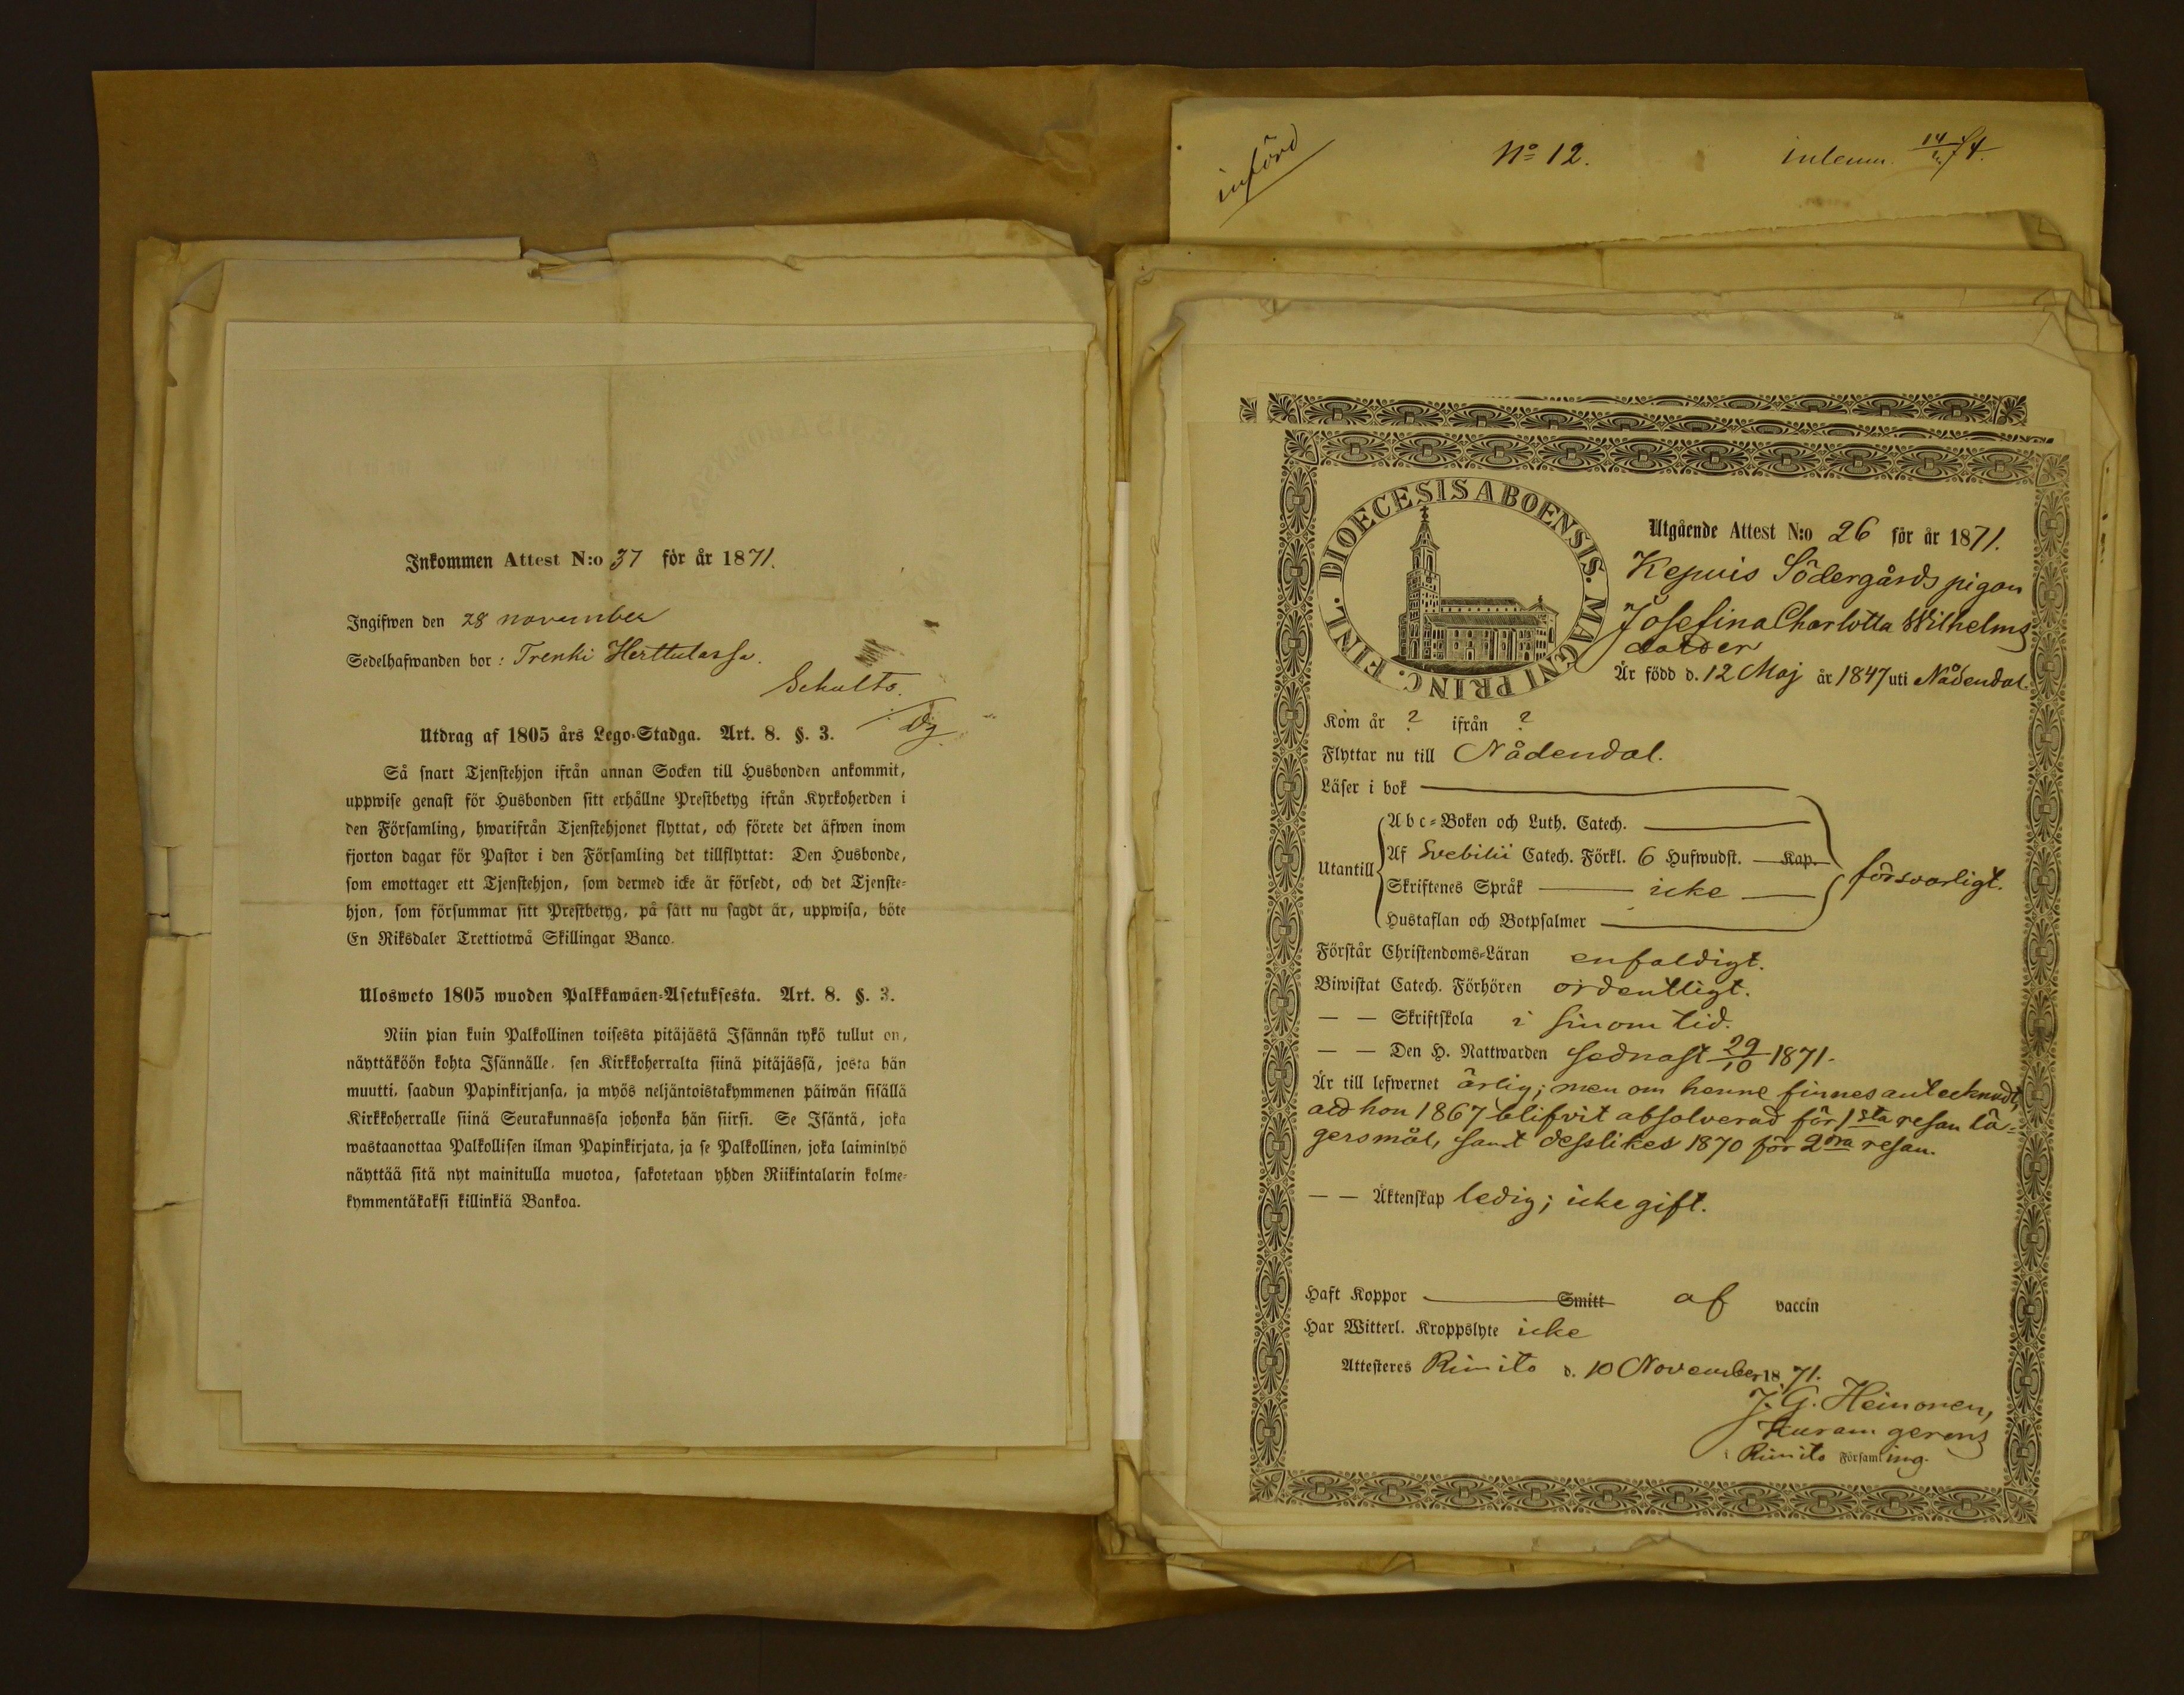 Inkommen Attest N:o 37 för år 1871.
Ingifwen den 28 november
Sedelhafwanden bor: Trenki Herttulassa.
Schults.
Utdrag af 1805 års Lego-Stadga. Art. 8. §. 3.
Så snart Tjenstehjon ifrån annan Socken till Husbonden ankommit,
uppwise genast för Husbonden sitt erhållne Prestbetyg ifrån Kyrkoherden i
den Församling, hwarifrån Tjenstehjonet flyttat, och förete det äfwen inom
fjorton dagar för Pastor i den Församling det tillflyttat: Den Husbonde,
som emottager ett Tjenstehjon, som dermed icke är försedt, och det Tjenste-
hjon, som försummar sitt Prestbetyg, på sätt nu sagdt är, uppwisa, böte
En Riksdaler Trettiotwå Skillingar Banco.
Ulosweto 1805 wuoden Palkkawäen-Asetuksesta. Art. 8. §. 3.
Niin pian kuin Palkollinen toisesta pitäjästä Isännän tykö tullut on,
näyttäköön kohta Isännälle, sen Kirkkoherralta siinä pitäjässä, josta hän
muutti, saadun Papinkirjansa, ja myös neljäntoistakymmenen päiwän sisällä
Kirkkoherralle siinä Seurakunnassa johonka hän siirsi. Se Isäntä, joka
wastaanottaa Palkollisen ilman Papinkirjata, ja se Palkollinen, joka laiminlyö
näyttää sitä nyt mainitulla muotoa, sakotetaan yhden Riikintalarin kolme-
kymmentäkaksi killinkiä Bankoa.
införd
No 12.
inlemn. 14/74.
DIOECESIS ABOENSIS. MAGNI PRINC. FINL.
Utgående Attest N:o 26 för år 1871.
Kepuis Södergårds pigan
Josefina Charlotta Wilhelms
dotter
Är född d. 12 Maj år 1847 uti Nådendal.
Kom år ? ifrån ?
Flyttar nu till Nådendal.
Läser i bok
Utantill
Abc-Boken och Luth. Catech.
Af Svebilii Catech. Förkl. 6 Hufwudst. Kap.
Skriftenes Språk icke
Hustaflan och Botpsalmer
försvarligt.
Förstår Christendoms-Läran enfaldigt.
Biwistat Catech. Förhören ordentligt.
— — Skriftskola i sinom tid.
— — Den H. Nattwarden sednast 29/10 1871.
Är till lefwernet ärlig; men om henne finnes antecknadt,
att hon 1867 blifvit absolverad för 1sta resan lä-
gersmål, samt desslikes 1870 för 2dra resan.
— — Äktenskap ledig; icke gift.
Haft Koppor Smitt af vaccin
Har Witterl. Kroppslyte icke
Attesteres Rimito d. 10 November 1871.
J. G. Heinonen,
Kuram gerens
i Rimito Församling.